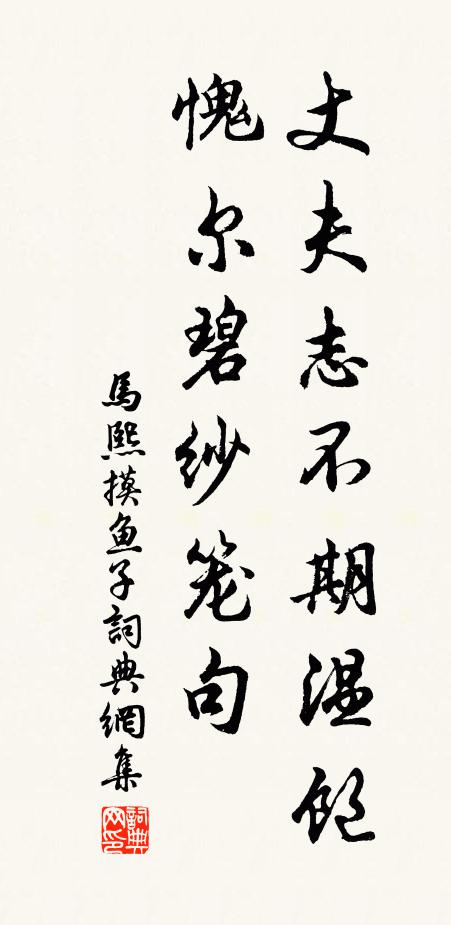 丈夫志不期温饱
愧尔碧纱笼句
馬熙摸鱼子詞典網集
詞典网印